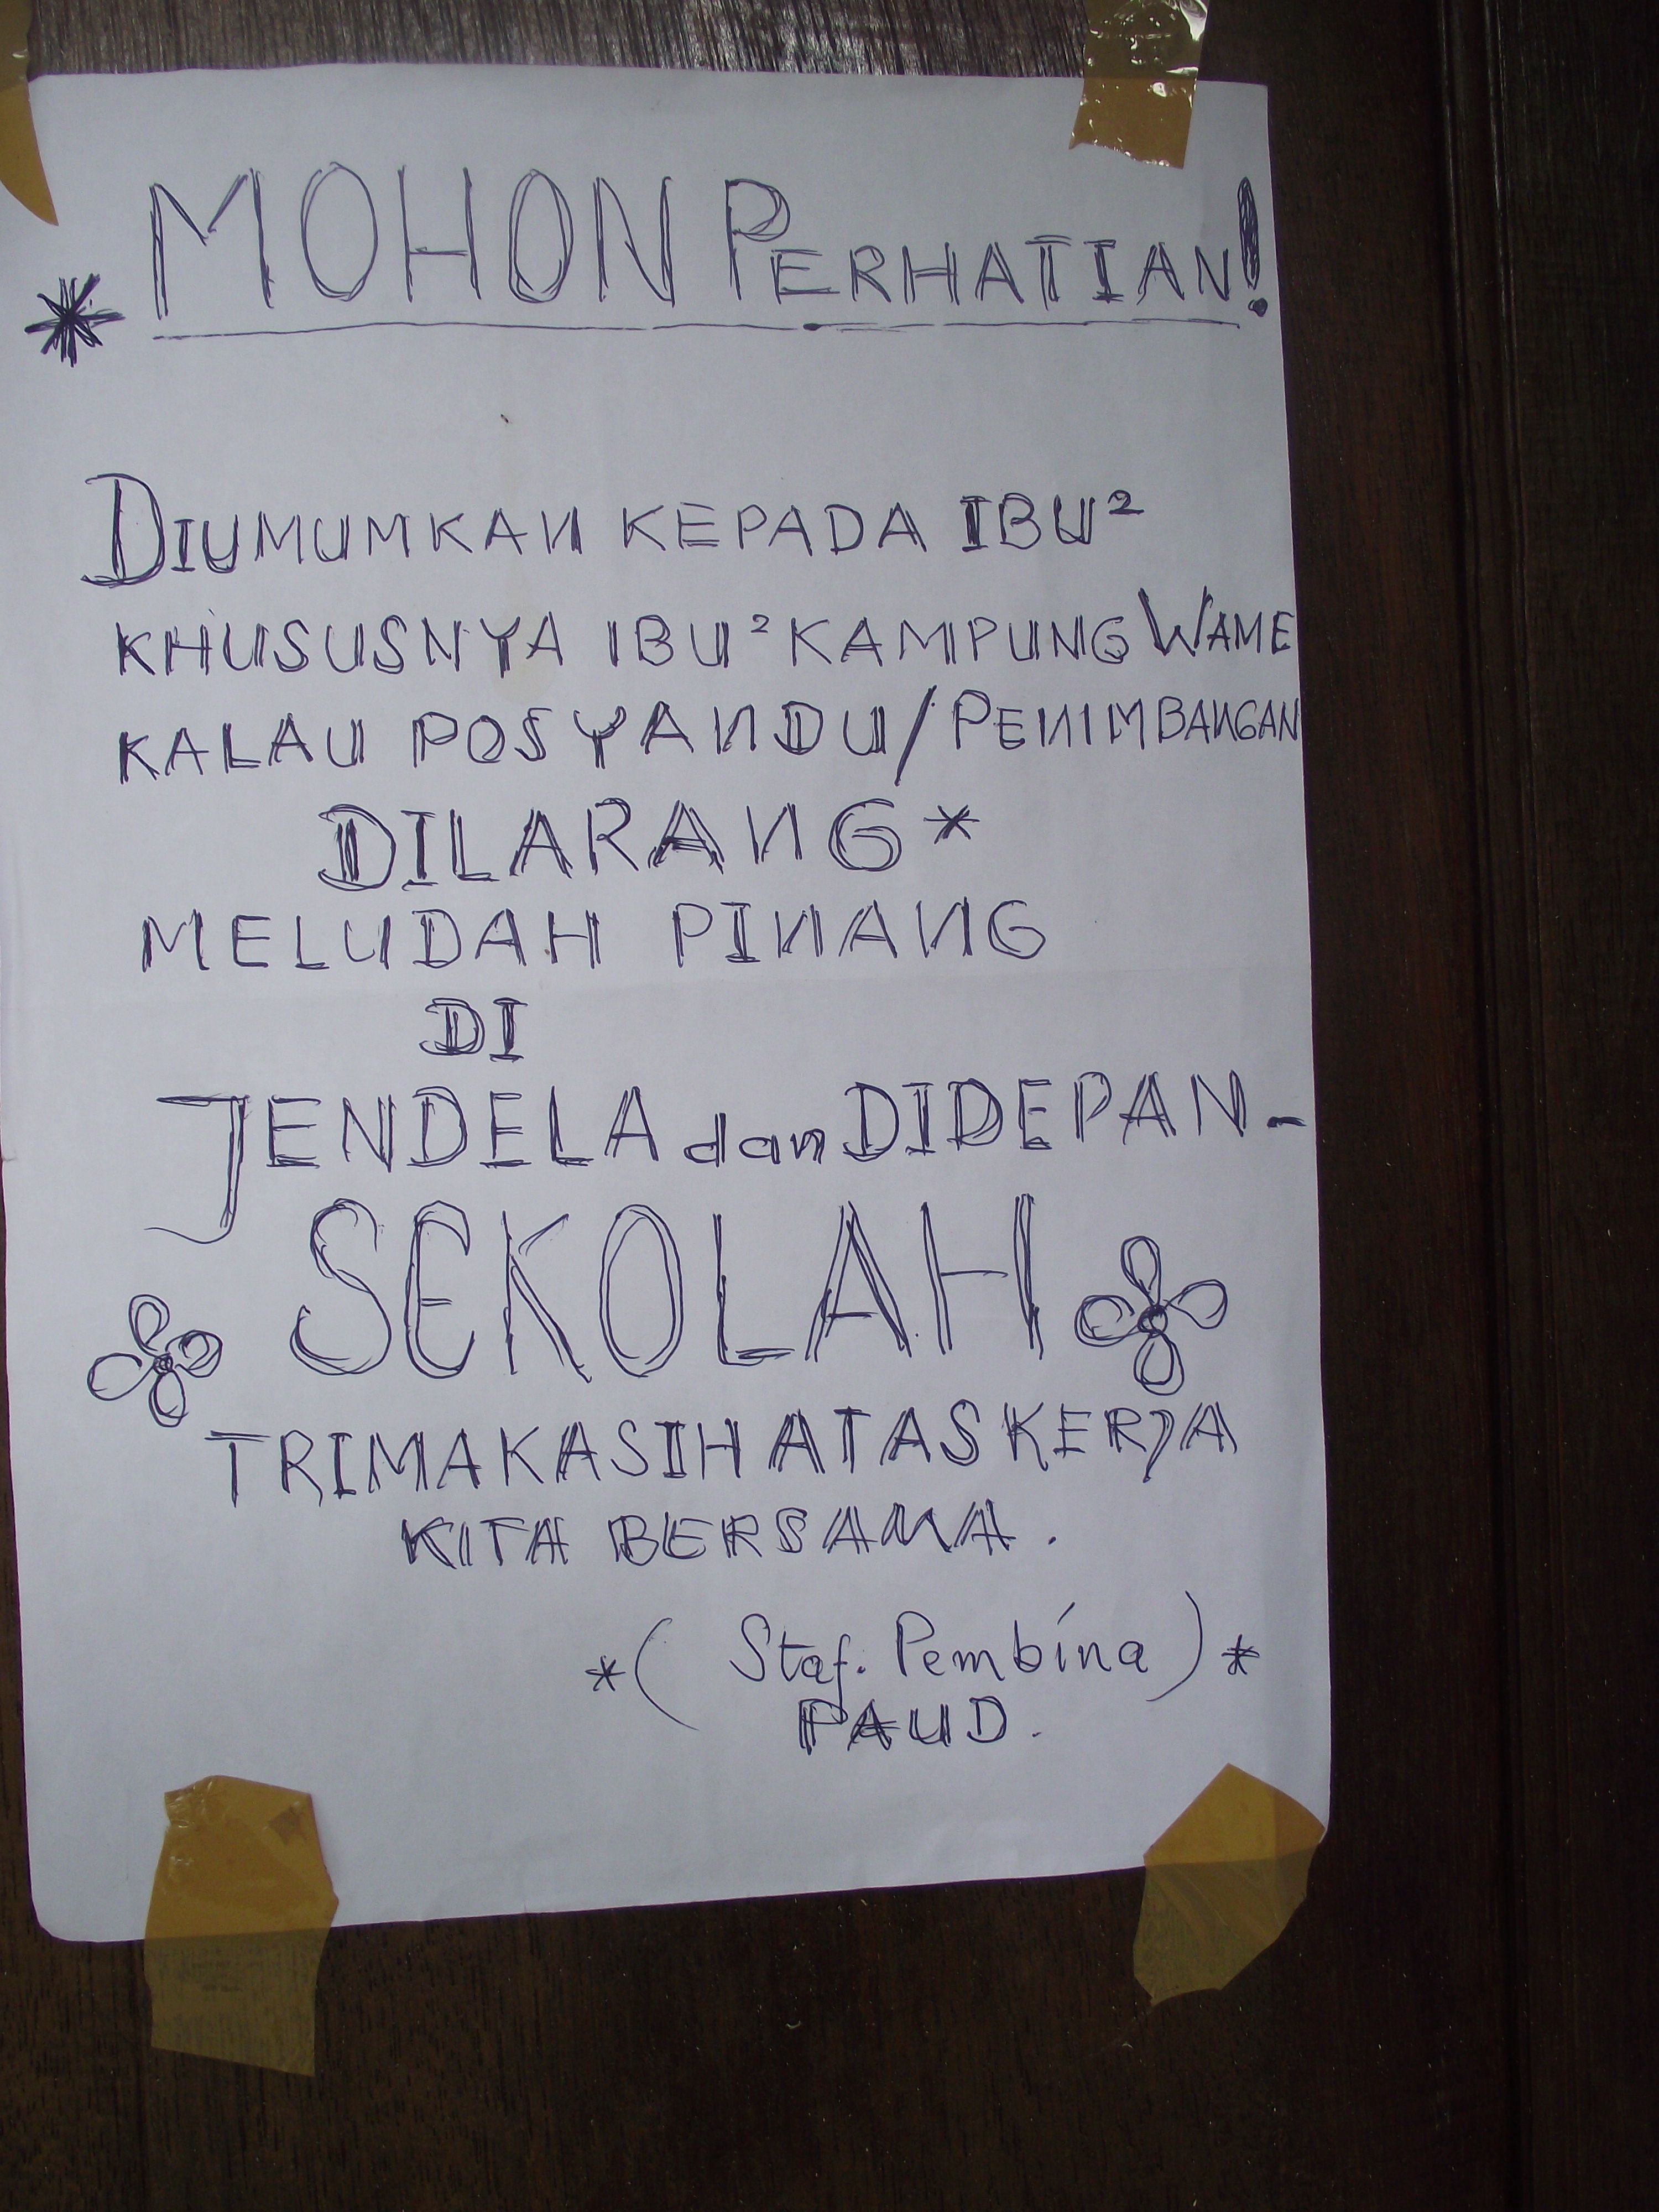 * MOHON PERHATIAN!
DIUMUMKAN KEPADA IBU²
KHUSUSNYA IBU² KAMPUNG WAME
KALAU POSYANDU/PENIMBANGAN
DILARANG*
MELUDAH PINANG
DI
JENDELA dan DIDEPAN-
SEKOLAH
TRIMAKASIH ATAS KERJA
KITA BERSAMA.
*( Staf. Pembina )*
PAUD.